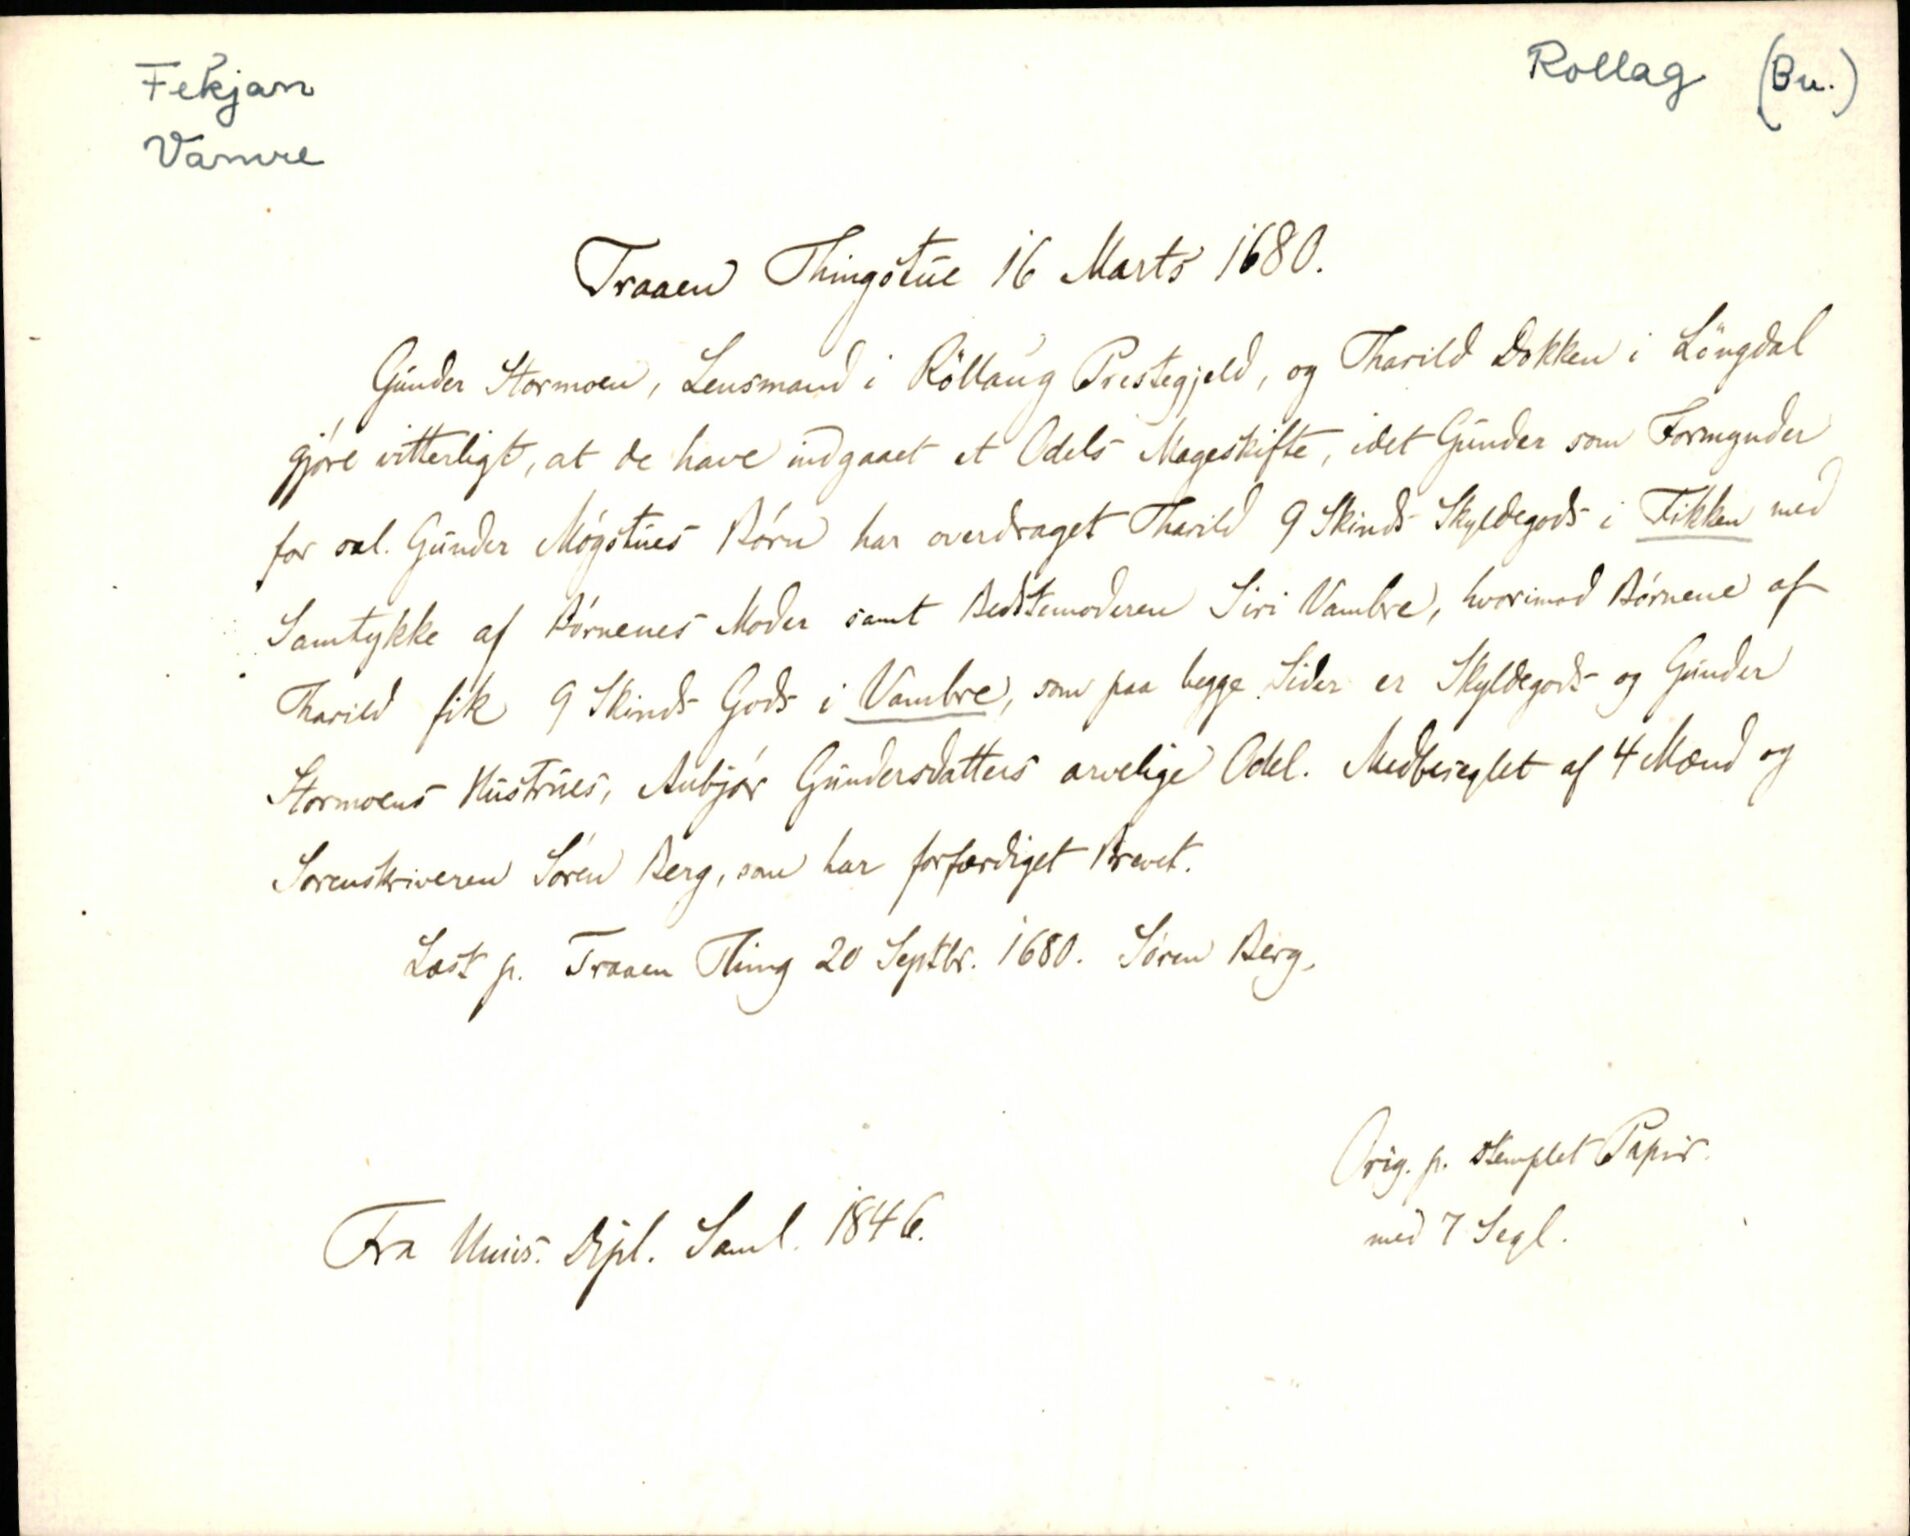 Fekjan
Vamre
Rollag (Bu.)
Traaen Thingstue 16 Marts 1680.
Gunder Stormoen, Lensmand i Röllaug Prestegjeld, og Tharild Dokken i Löngdal
gjöre vitterligt, at de have indgaaet et Odels Mageskifte, idet Gunder som Formynder
for sal. Gunder Mögstues Börn har overdraget Tharild 9 Skinds Skyldegods i Fikken med
Samtykke af Börnenes Moder samt Bedstemoderen Siri Vambre, hvorimod Börnene af
Tharild fik 9 Skinds Gods i Vambre, som paa begge Sider er Skyldegods og Gunder
Stormoens Hustrues, Anbjör Gundersdatters arvelige Odel. Medbeseglet af 4 Mænd og
Sorenskriveren Sören Berg, som har forfærdiget Brevet.
Læst p. Traaen Thing 20 Septbr. 1680. Sören Berg.
Orig. p. stemplet Papir.
med 7 Segl.
Fra Univs. Dipl. Saml. 1846.